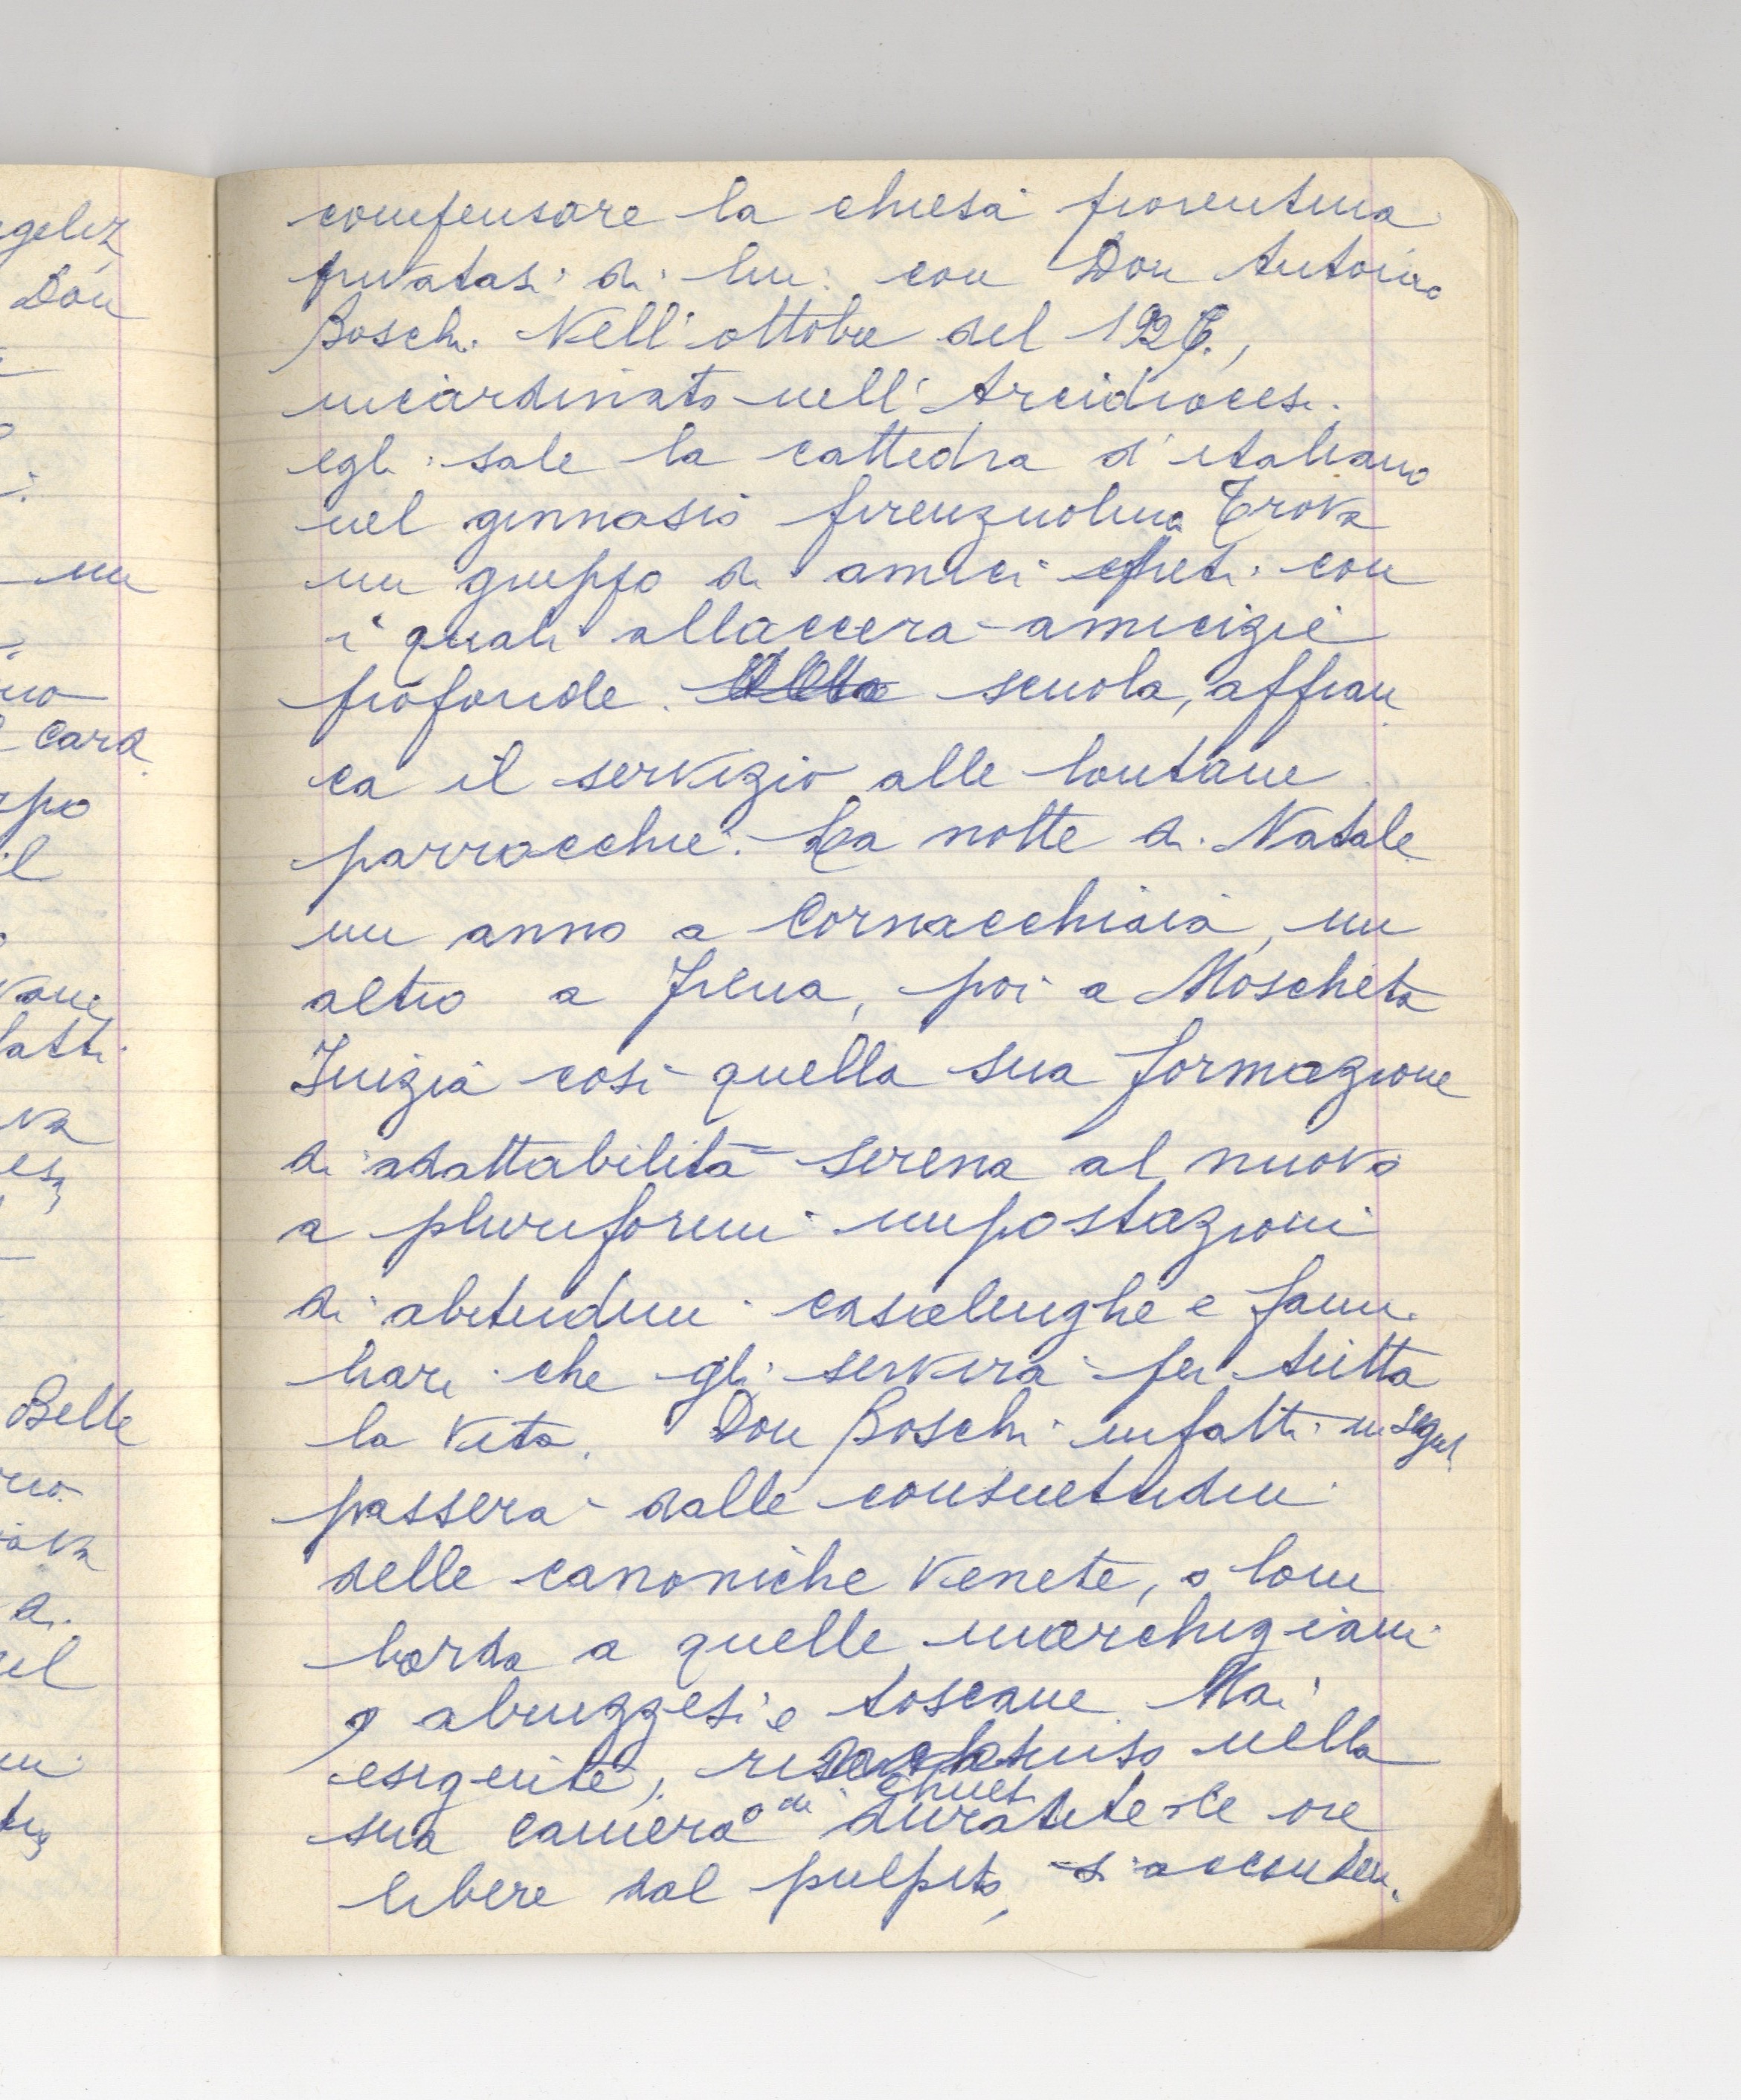 compensare la chiesa fiorentina
privatasi di lui con Don Antonio
Boschi. Nell'ottobre del 1926,
incardinato nell'Arcidiocesi
egli sale la cattedra d'italiano
nel ginnasio firenzuolino Trova
un gruppo di amici preti con
i quali allaccerà amicizie
profonde. Alla scuola, affian
ca il servizio alle lontane
parrocchie. La notte di Natale
un anno a Cornacchiaia, un
altro a Frena, poi a Moscheta
Inizia così quella sua formazione
di adattabilità serena al nuovo
a pluriformi impostazioni
di abitudini casalinghe e fami
liari che gli servirà per tutta
la vita. Don Boschi infatti in segui
passerà dalle consuetudini
delle canoniche venete, o lom
barda a quelle marchigiani
o abruzzesi e toscane. Mai
esigente, nella
sua camera o in chiesa durante le ore
libere dal pulpito, si acconten
ngeliz
Don
un
Card
il
Belle
di